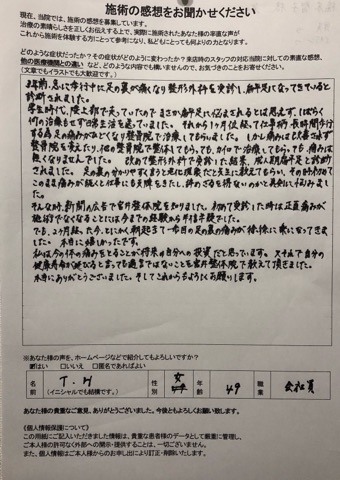 施術の感想をお聞かせください
現在、当院では、施術の感想を募集しています。
治療の素晴らしさを正しくお伝えする上で、実際に施術された、あなた様の率直な声が
これから施術を体験する方にとって参考になり、私どもにとっても何よりの力となります。
どのような症状だったか?その症状がどのように変わったか?来店時のスタッフの対応
他の医療機関との違い など、どのような内容でも構いませんので、お気づきのことをお寄せください。
(文章でもイラストでも大歓迎です。)
急に歩行中に足の裏が痛くなり整形外科を受診し扁平足になってきていると
診断されました。
学生時代、陸上部で走っていたのでまさか扁平足に悩まされるとは思えず、しばらく
何の治療もせず日常生活を送っていました。それから1ヶ月位経って仕事柄長時間歩行
する為足の痛みがひどくなり整骨院で治療してもらいました。しかし痛みは改善されず
整骨院を変えたり、他の整骨院で整体してもらっても、カイロで治療してもらっても、痛みは
無くなりませんでした。改めて整形外科で受診した結果、成人期扁平足と診断
されました。足の裏の分かりやすく言うと老化現象だと先生に教えてもらい、その時初めて
このまま痛みが続くと仕事にも支障をきたし、終わざるを得ないのかと真剣に悩みました。
そんな時、新聞の広告で宮井整体院を知りました。初めて受診した時は正直痛みが
施術でなくなることには今までの経験から半信半疑でした。
でも、2ヶ月経った今、とにかく朝起きて一歩目の足の裏の痛みが徐々に楽になってきま
した。本当に嬉しかったです。
私は今の体の痛みをとることが将来の自分への投資だと思っています。
健康寿命が延びると言っても過言ではないことを宮井整体院で教えて頂きました。
本当にありがとうございました。そしてこれからもよろしくお願い致します。
※あなた様の声を、ホームページなどで紹介してもよろしいですか?
☑はい □いいえ □匿名であればよい
名前 T.H (イニシャルでも結構です。) 性別 女 年齢 49 職業 会社員
あなた様の貴重なご意見、ありがとうございました。今後ともよろしくお願い致します。
《個人情報保護について》
この用紙にご記入いただきました情報は、貴重な患者様のデータとして厳重に管理し、
ご本人様の許可なく外部への開示・提供することは、一切ございません。
また、個人情報はご本人様からのお申し出により訂正・削除いたします。